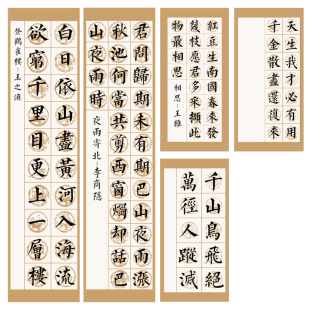 白日依山盡黃河入海流
欲窮千里目更上一層樓
登鸛雀樓–王之渙
君問歸期未有期巴山夜雨漲
秋池何當共剪西窗燭却話巴
山夜雨時
夜雨寄北–李商隱
紅豆生南國春來發
幾枝願君多采擷此
物最相思 相思–王維
天生我才必有用
千金散盡還復來
千山鳥飛絕
萬徑人蹤滅